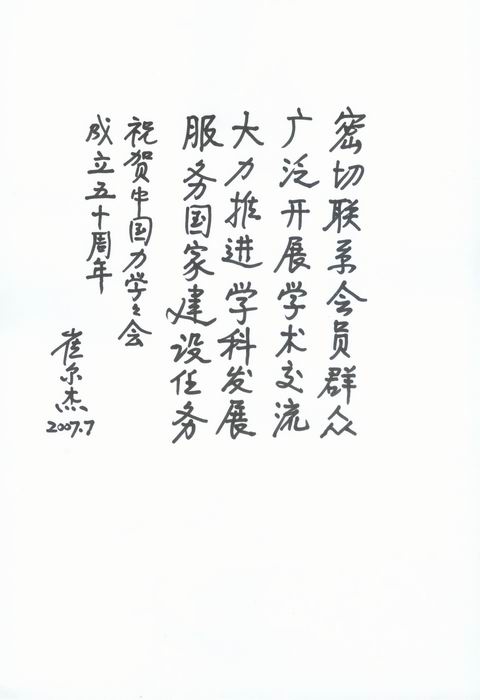 密切联系会员群众
广泛开展学术交流
大力推进学科发展
服务国家建设任务
祝贺中国力学学会
成立五十周年
崔尔杰
2007.7